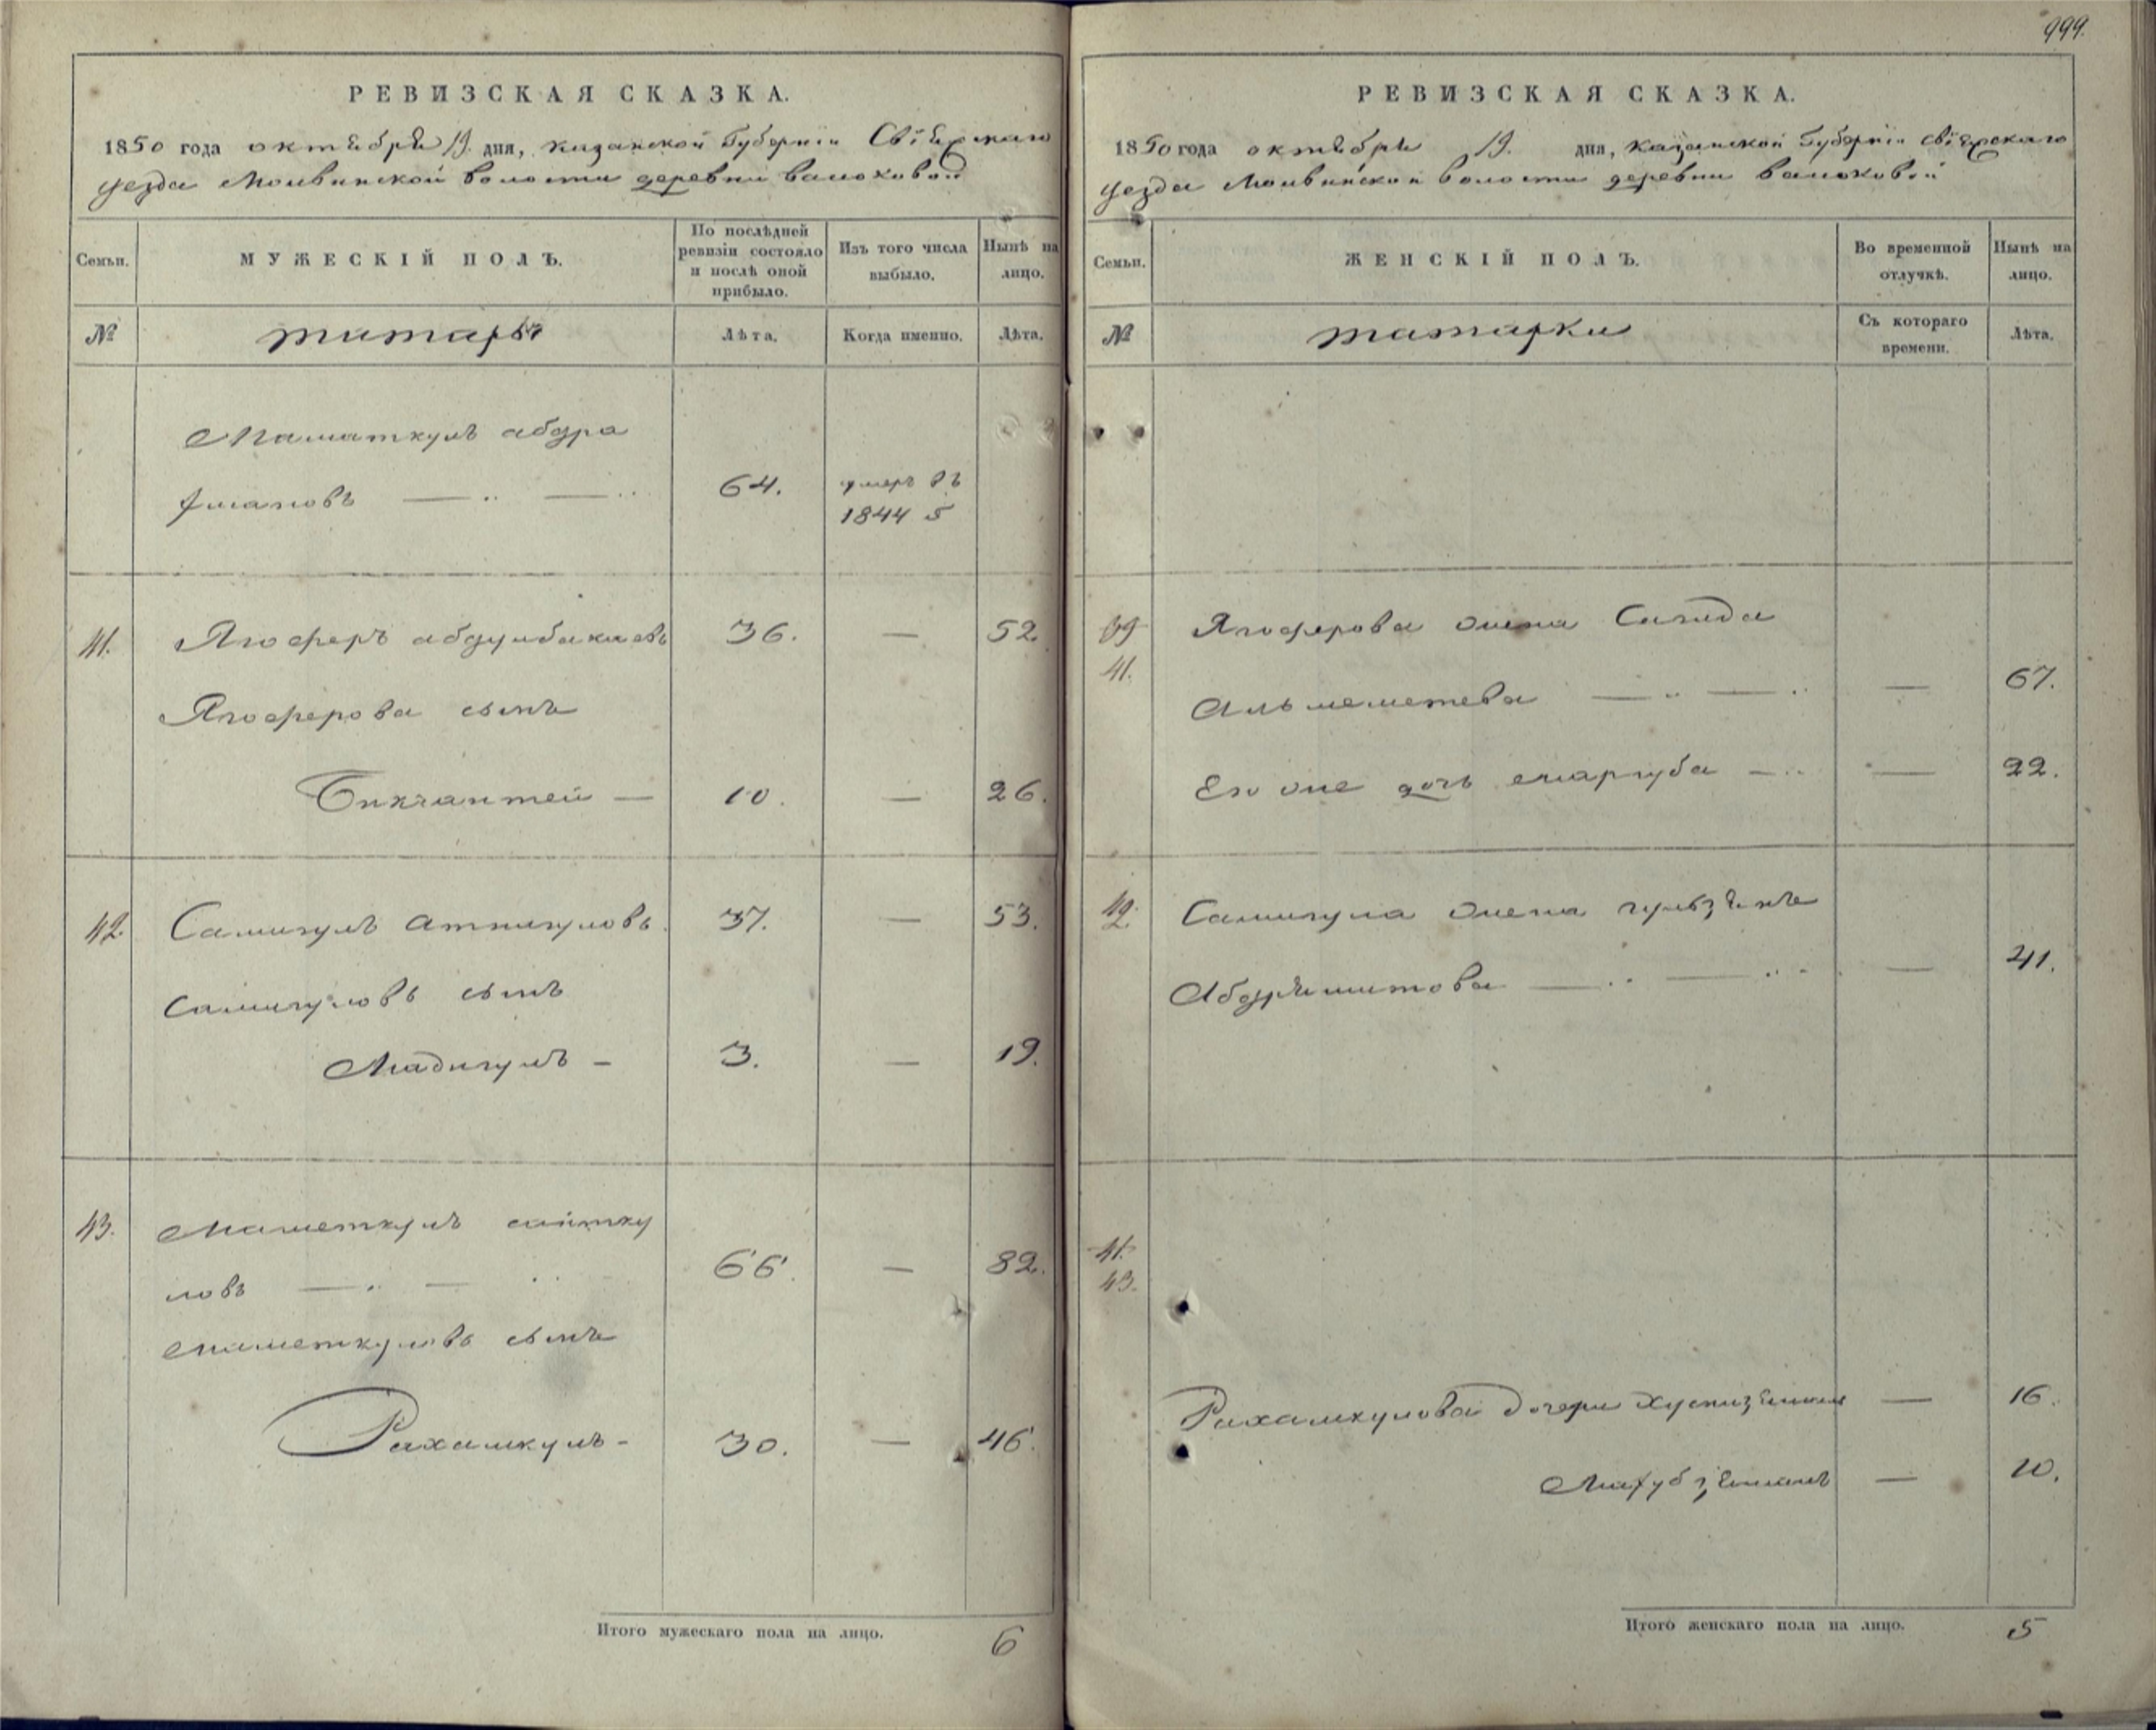 999.
РЕВИЗСКАЯ СКАЗКА.
1850 года октября 19. дня, казанской Губернии Свіяжскаго
уезда Молвинской волости деревни валоховой
Семьи. МУЖЕСКІЙ ПОЛЪ. По послѣдней ревизіи состояло и послѣ оной прибыло. Изъ того числа выбыло. Нынѣ на лицо.
№ татаръ Лѣта. Когда именно. Лѣта.
Маматкулъ абдра
умеръ въ
64.
1844
41. Ягоферъ абдулбакиевъ 36. — 52.
Ягоферова сынъ
Бикчантей — 10. — 26.
42. Самигулъ Атнигуловъ 37. — 53.
Самигуловъ сынъ
Мадигулъ — 3. — 19.
43. Маметкулъ сайтку
ловъ 66. — 82.
маметкуловъ сынъ
Рахамкулъ - 30. — 46.
Итого мужескаго пола на лицо. 6
РЕВИЗСКАЯ СКАЗКА.
1850 года октября 19. дня, казанской Губернии свіяжскаго
уезда Молвинской волости деревни валоховой
Семьи. ЖЕНСКІЙ ПОЛЪ. Во временной отлучкѣ. Нынѣ на лицо.
№ татарки Съ котораго времени. Лѣта.
39 Ягоферова жена Сагида
41. Альмеметева — 67.
Его же дочь маргуба — 22.
42. Самигула жена гульзянъ
Абдряшитова — 41.
41.
43.
Рахамкулова дочери — 16.
— 10.
Итого женскаго пола на лицо. 5